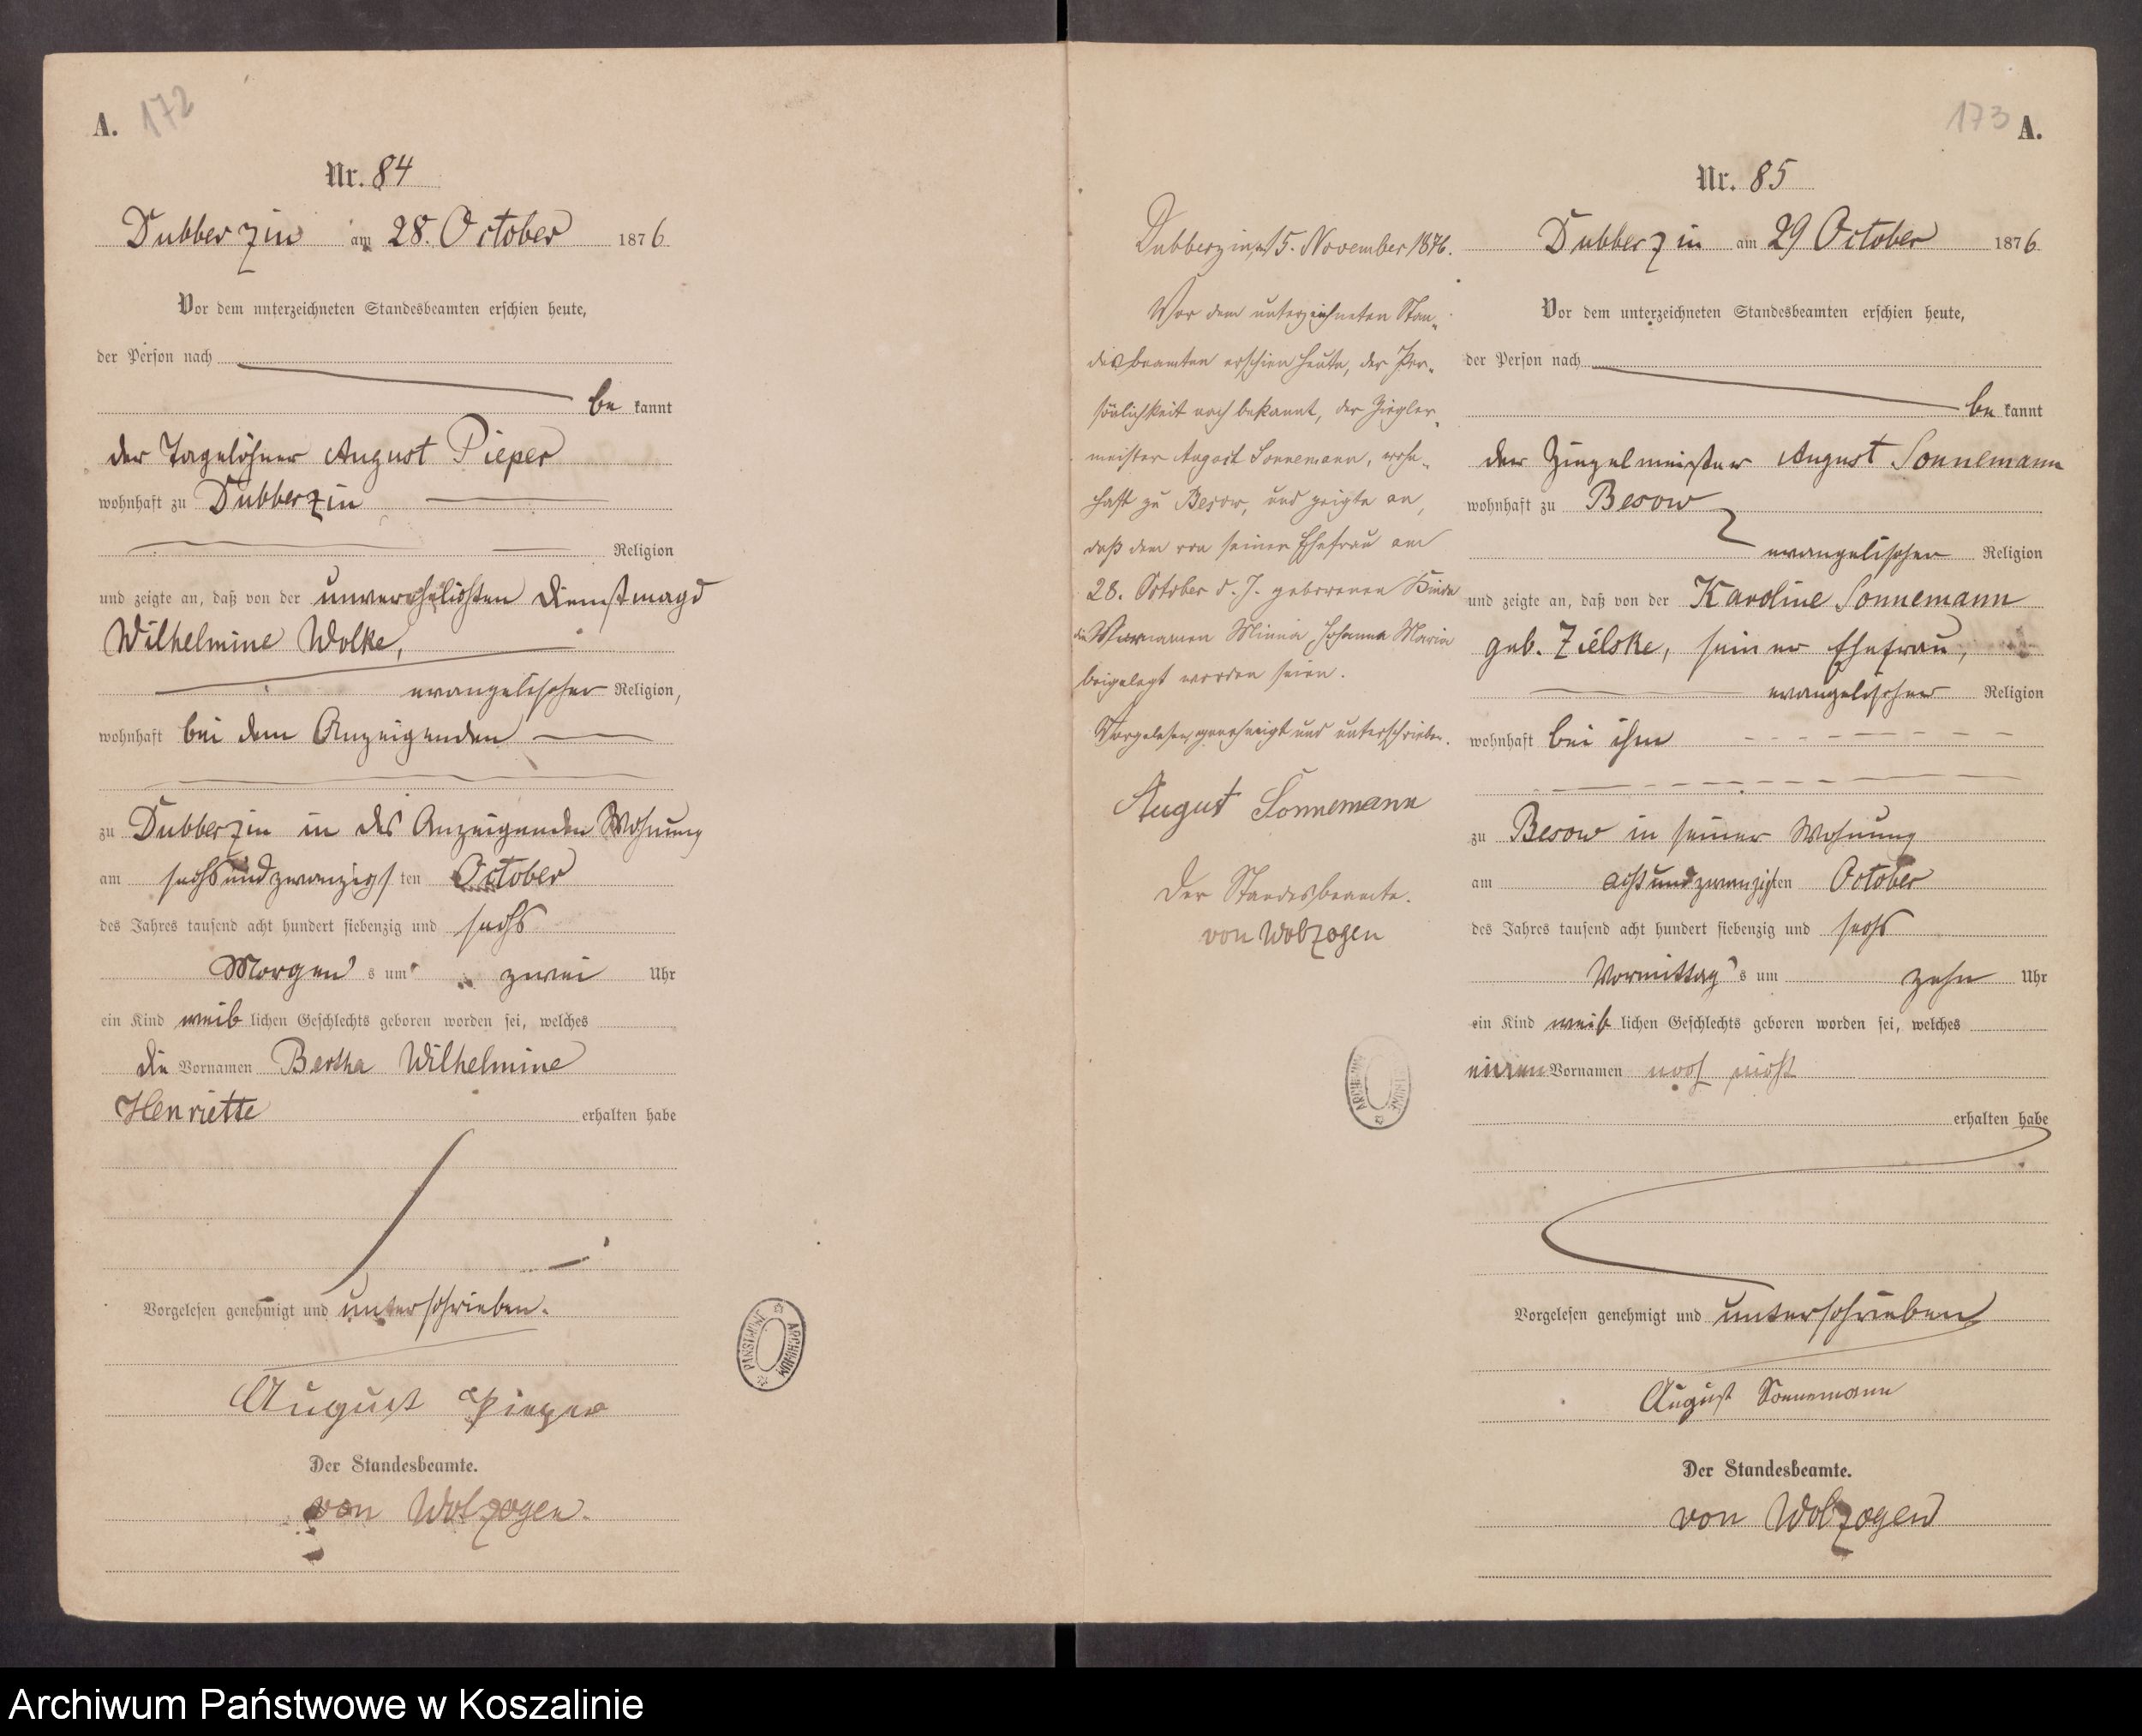 A. 172
Nr. 84
Dubberzin am 28. October 1876
Vor dem unterzeichneten Standesbeamten erschien heute,
der Person nach
be kannt
der Tagelöhner August Pieper
wohnhaft zu Dubberzin
Religion
und zeigte an, daß von der unverehelichten Dienstmagd
Wilhelmine Wolke,
evangelischer Religion,
wohnhaft bei dem Anzeigenden
zu Dubberzin in des Anzeigenden Wohnung
am sechsundzwanzigs ten October
des Jahres tausend acht hundert siebenzig und sechs
Morgen s um zwei Uhr
ein Kind weib lichen Geschlechts geboren worden sei, welches
die Vornamen Bertha Wilhelmine
Henriette erhalten habe
Vorgelesen genehmigt und unterschrieben.
August Pieper
Der Standesbeamte.
von Wolzogen.
PAŃSTWOWE ARCHIWUM
Dubberzin, 15. November 1876.
Vor dem unterzeichneten Stan-
desbeamten erschien heute, der Per-
sönlichkeit nach bekannt, der Ziegler-
meister August Sonnemann, wohn-
haft zu Besow, und zeigte an,
daß dem von seiner Ehefrau am
28. October d. J. geborenen Kinde
die Vornamen Minna Johanna Maria
beigelegt worden seien.
Vorgelesen, genehmigt und unterschrieben.
August Sonnemann
Der Standesbeamte.
von Wolzogen
ARCHIWUM
173 A.
Nr. 85
Dubberzin am 29 October 1876
Vor dem unterzeichneten Standesbeamten erschien heute,
der Person nach
be kannt
der Ziegelmeister August Sonnemann
wohnhaft zu Besow
evangelischer Religion
und zeigte an, daß von der Karoline Sonnemann
geb. Zielske, seiner Ehefrau,
evangelischer Religion
wohnhaft bei ihm
zu Besow in seiner Wohnung
am achtundzwanzigsten October
des Jahres tausend acht hundert siebenzig und sechs
Vormittag s um zehn Uhr
ein Kind weib lichen Geschlechts geboren worden sei, welches
einen Vornamen noch nicht
erhalten habe
Vorgelesen genehmigt und unterschrieben
August Sonnemann
Der Standesbeamte.
von Wolzogen
Archiwum Państwowe w Koszalinie